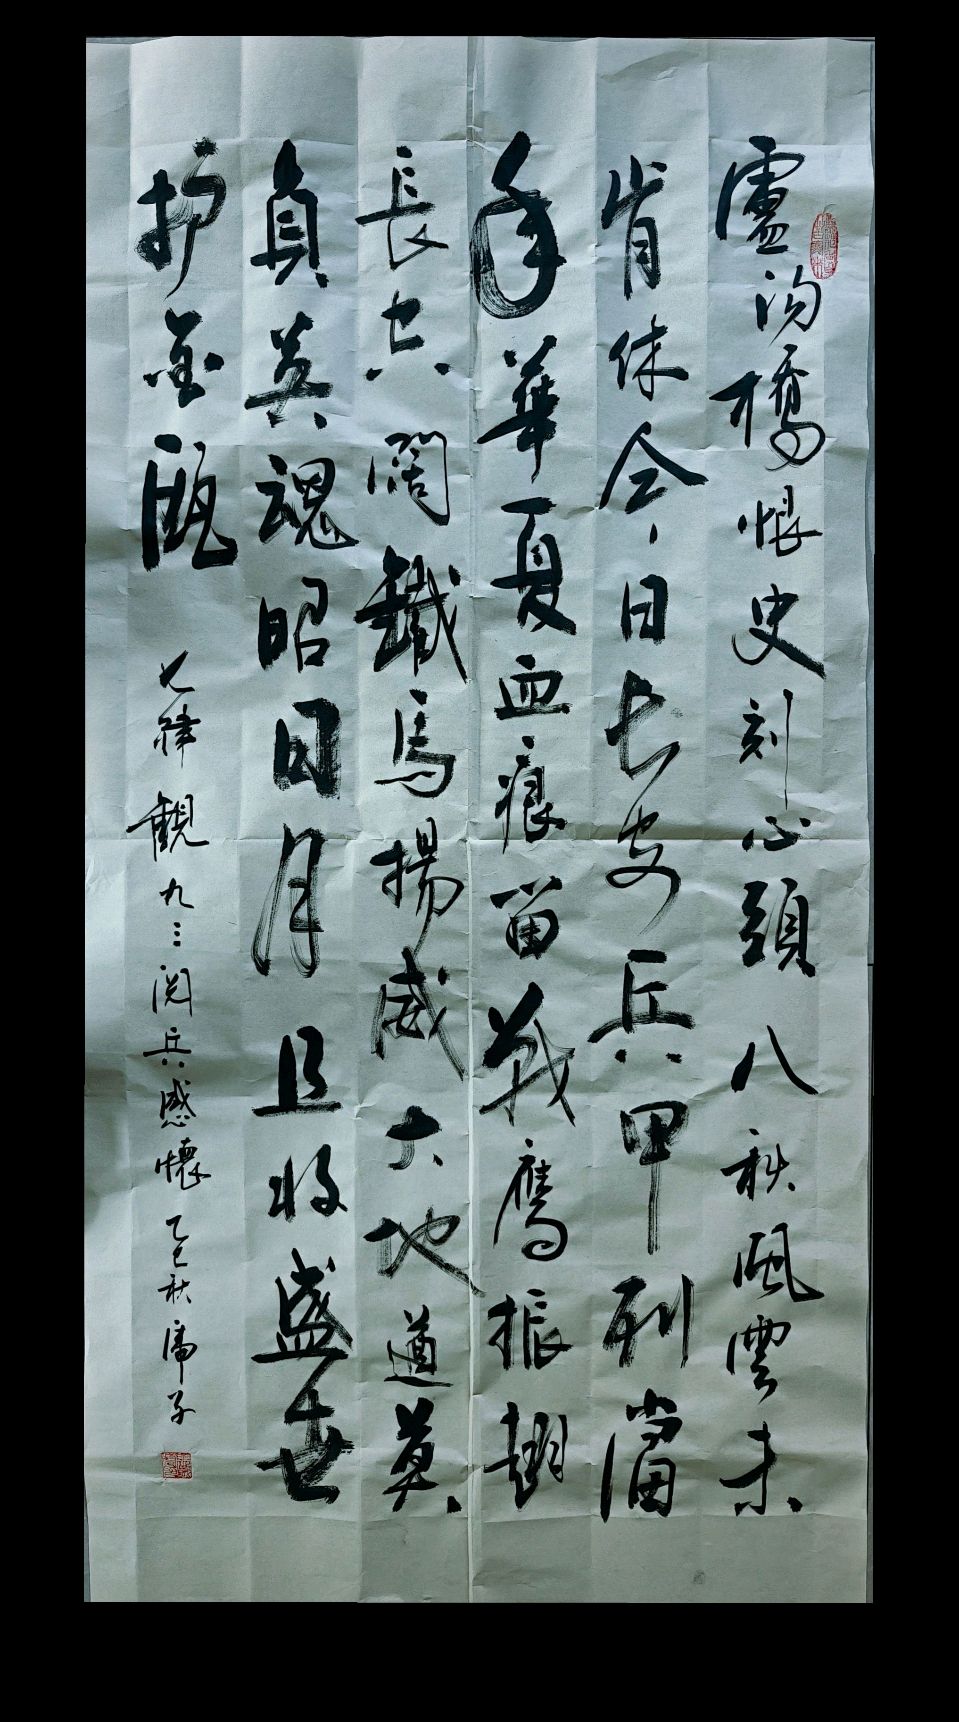 盧沟橋恨史刻心頭八秩風雲未
肯休今日長安兵甲列當
年華夏血痕留戰鷹振翅
長空闊鐵馬揚威大地遒莫
負英魂昭日月且将盛世
护金甌
七律觀九三阅兵感懷乙巳秋子